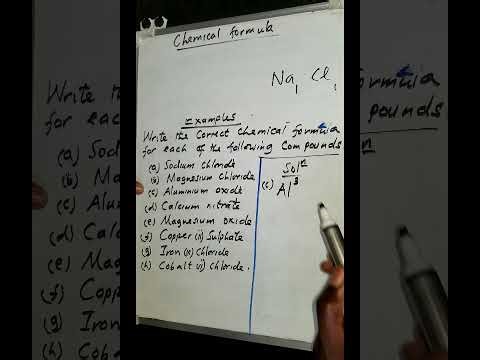 Chemical formula
Na₁ Cl₁
Examples
Write the Correct Chemical formula
for each of the following Compounds
(a) Sodium Chloride
(b) Magnesium Chloride
(c) Aluminium oxide
(d) Calcium nitrate
(e) Magnesium oxide
(f) Copper (ii) Sulphate
(g) Iron Chloride
(h) Cobalt Chloride.
Solⁿ
(c) Al³